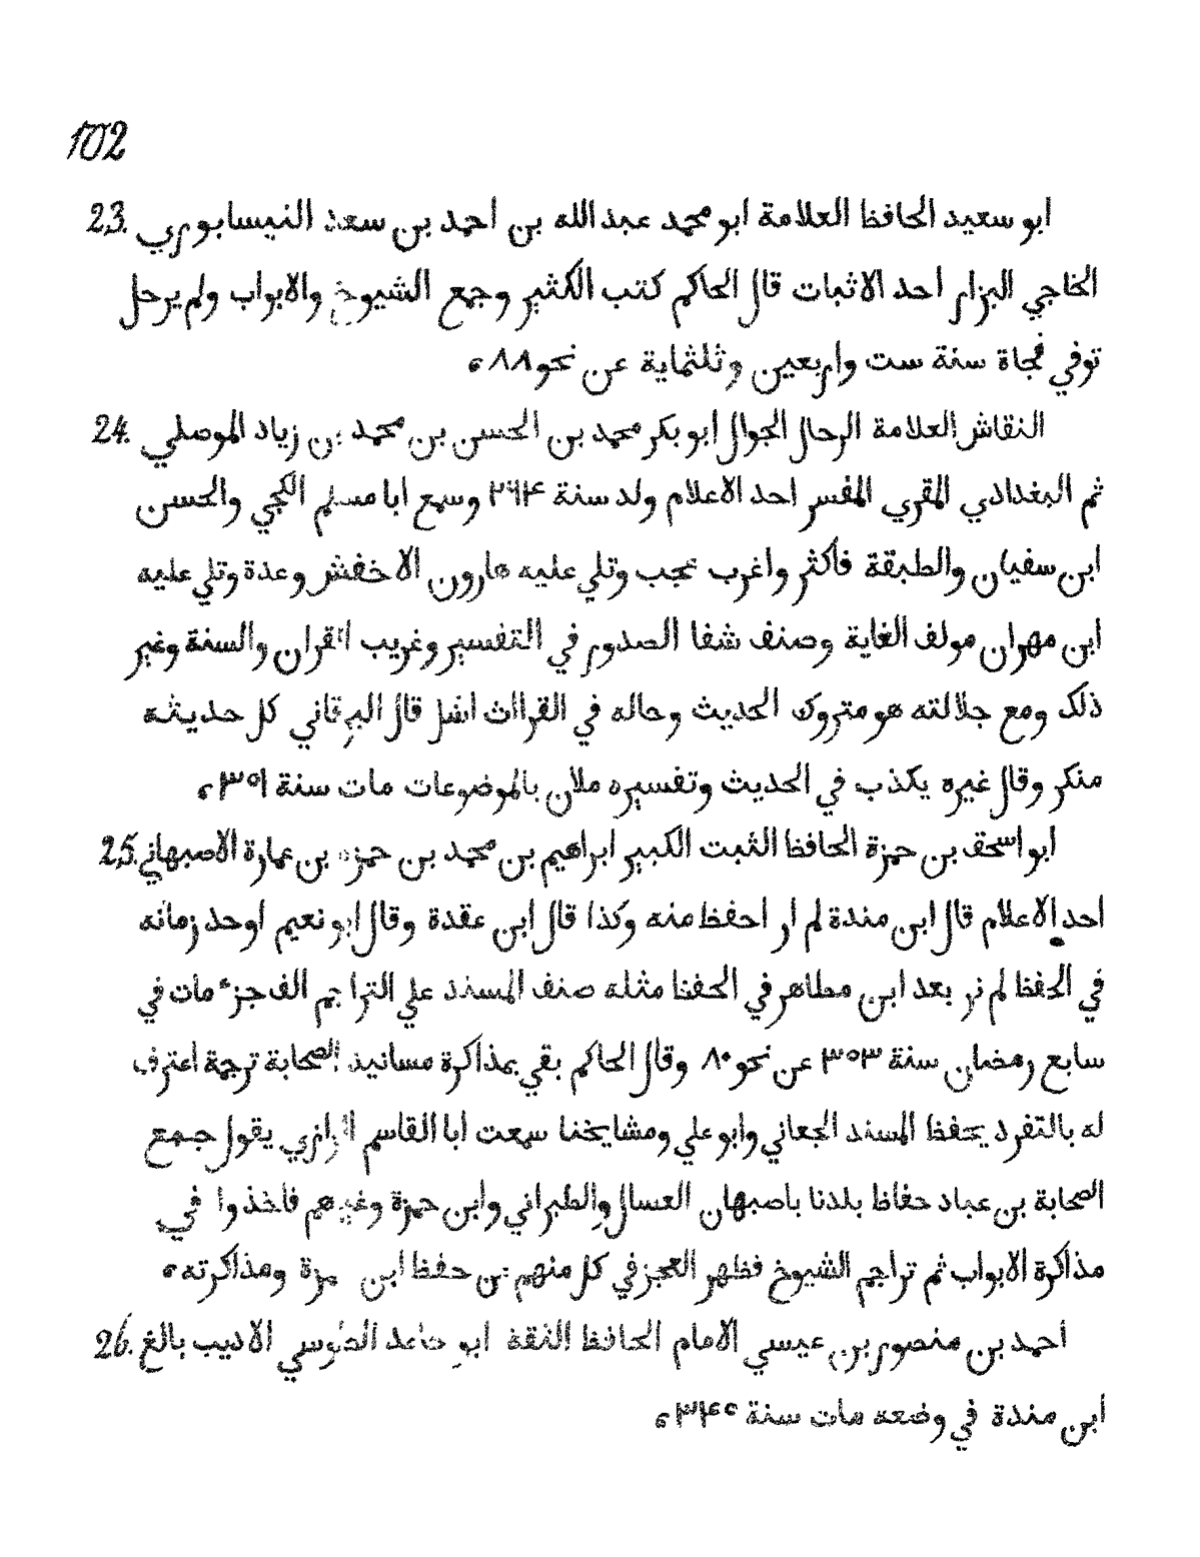 102
23. ابو سعيد الحافظ العلامة ابو محمد عبد الله بن احمد بن سعد النيسابوري
الخاجي البزار احد الاثبات قال الحاكم كتب الكثير وجمع الشيوخ والابواب ولم يرحل
توفي فجاة سنة ست واربعين وثلثماية عن نحو ٨٨ ه
24. النقاش العلامة الرحال الجوال ابو بكر محمد بن الحسن بن محمد بن زياد الموصلي
ثم البغدادي المقري المفسر احد الاعلام ولد سنة ٢٦٤ وسمع ابا مسلم الكجي والحسن
ابن سفيان والطبقة فاكثر واغرب نجب وتلي عليه هارون الاخفش وعدة وتلي عليه
ابن مهران مولف الغاية وصنف شفا الصدور في التفسير وغريب القران والسنة وغير
ذلك ومع جلالته هو متروك الحديث وحاله في القراات اشل قال البرقاني كل حديثه
منكر وقال غيره يكذب في الحديث وتفسيره ملان بالموضوعات مات سنة ٣٥١ ه
25. ابو اسحق بن حمزة الحافظ الثبت الكبير ابراهيم بن محمد بن حمزة بن عمارة الاصبهاني
احد الاعلام قال ابن مندة لم ار احفظ منه وكذا قال ابن عقدة وقال ابو نعيم اوحد زمانه
في الحفظ لم نر بعد ابن مطاهر في الحفظ مثله صنف المسند علي التراجم الف جزء مات في
سابع رمضان سنة ٣٥٣ عن نحو ٨٠ وقال الحاكم بقي بمذاكرة مسانيد الصحابة ترجمة اعترف
له بالتفرد بحفظ المسند الجعاني وابو علي ومشايخنا سمعت ابا القاسم الرازي يقول جمع
الصحابة بن عباد حفاظ بلدنا باصبهان العسال والطبراني وابن حمزة وغيرهم فاخذوا في
مذاكرة الابواب ثم تراجم الشيوخ فظهر العجز في كل منهم بن حفظ ابن حمزة ومذاكرته ه
26. احمد بن منصور بن عيسي الامام الحافظ الثقة ابو حامد الطوسي الاديب بالغ
ابن مندة في وضعه مات سنة ٣٤٥ ه